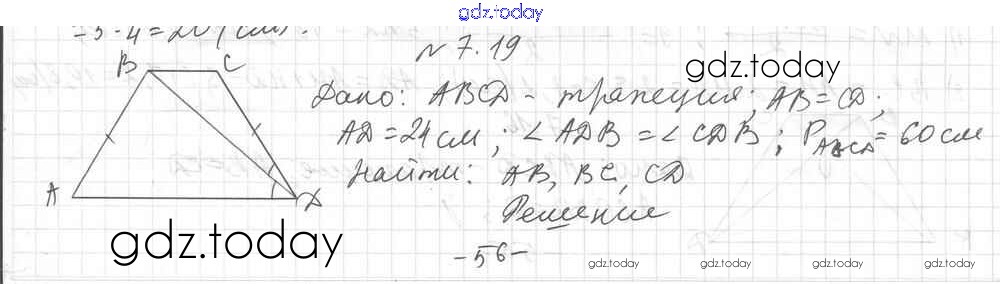 gdz.today
= 5·4 = 20 (см).
№ 7.19
gdz.today
B C
Дано: ABCD - трапеция; AB = CD;
AD = 24 см; ∠ADB = ∠CDB; P_ABCD = 60 см
A D
Найти: AB, BC, CD
Решение
gdz.today
-56-
gdz.today gdz.today gdz.today gdz.today